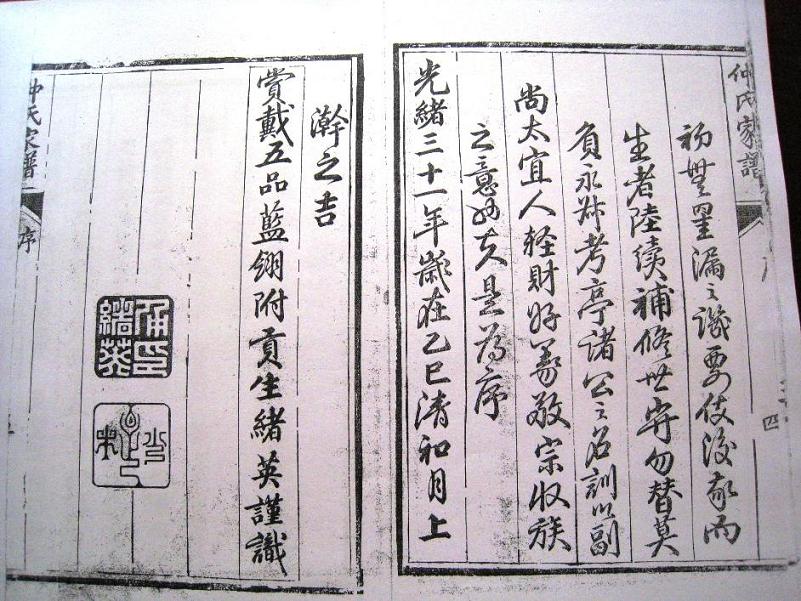 仲氏家譜
四
初無罣漏之譏要使後我而
生者陸續補修世守勿替莫
負永叔考亭諸公之名訓以副
尚太宜人輕財好義敬宗收族
之意也夫是為序
光緒三十一年歲在乙巳清和月上
澣之吉
賞戴五品藍翎附貢生緒英謹識
仲印緒英
仲氏家譜
序